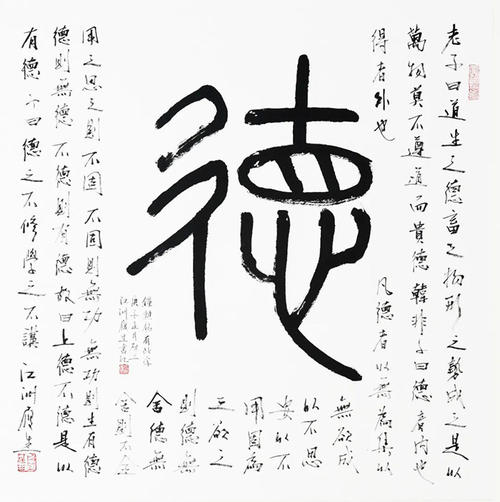 德
老子曰道生之德畜之物形之勢成之是以
萬物莫不遵道而貴德韓非子曰德者内也
得者外也
凡德者以無為集以
無欲成
以不思
安以不
用固為
之欲之
則德無
舍德無
舍則不全
用之思之則不固不固則無功無功則生有德
德則無德不德則有德故曰上德不德是以
有德子曰德之不修學之不講江洲